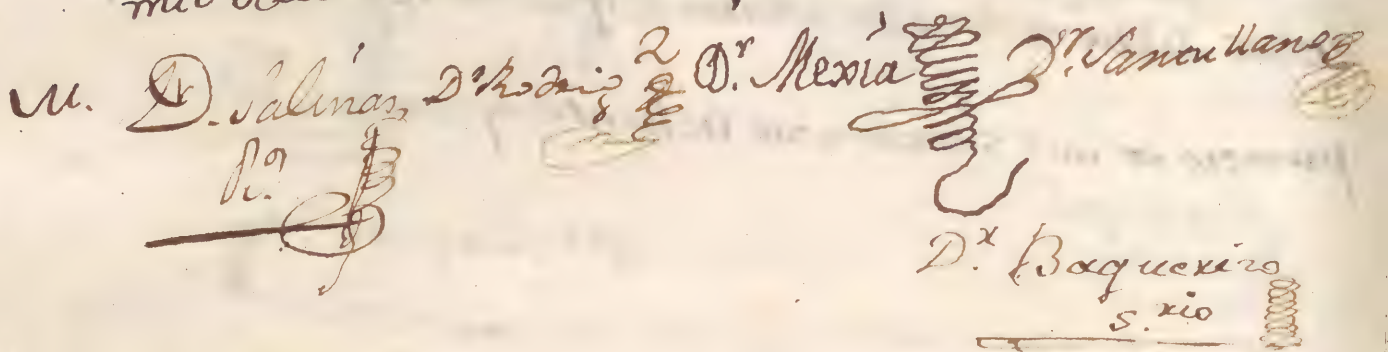 M. Dr. Salinas Dr Rodrig z Dr. Mexia Dr. Santullano
R.or
Dr. Baquerizo
s.rio